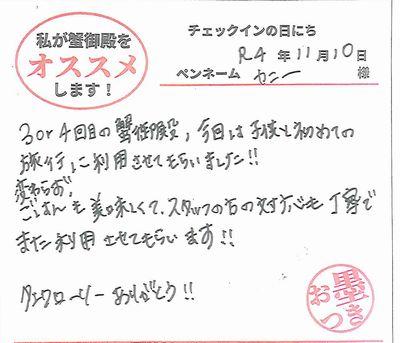 私が蟹御殿を
オススメ
します！
チェックインの日にち
R4年11月10日
ペンネーム カニー 様
3or4回目の蟹御殿、今回は子供と初めての
旅行に利用させてもらいました!!
変わらず、
ごはんも美味しくて、スタッフの方の対応も丁寧で
また利用させてもらいます!!
ありがとう!!
お墨つき